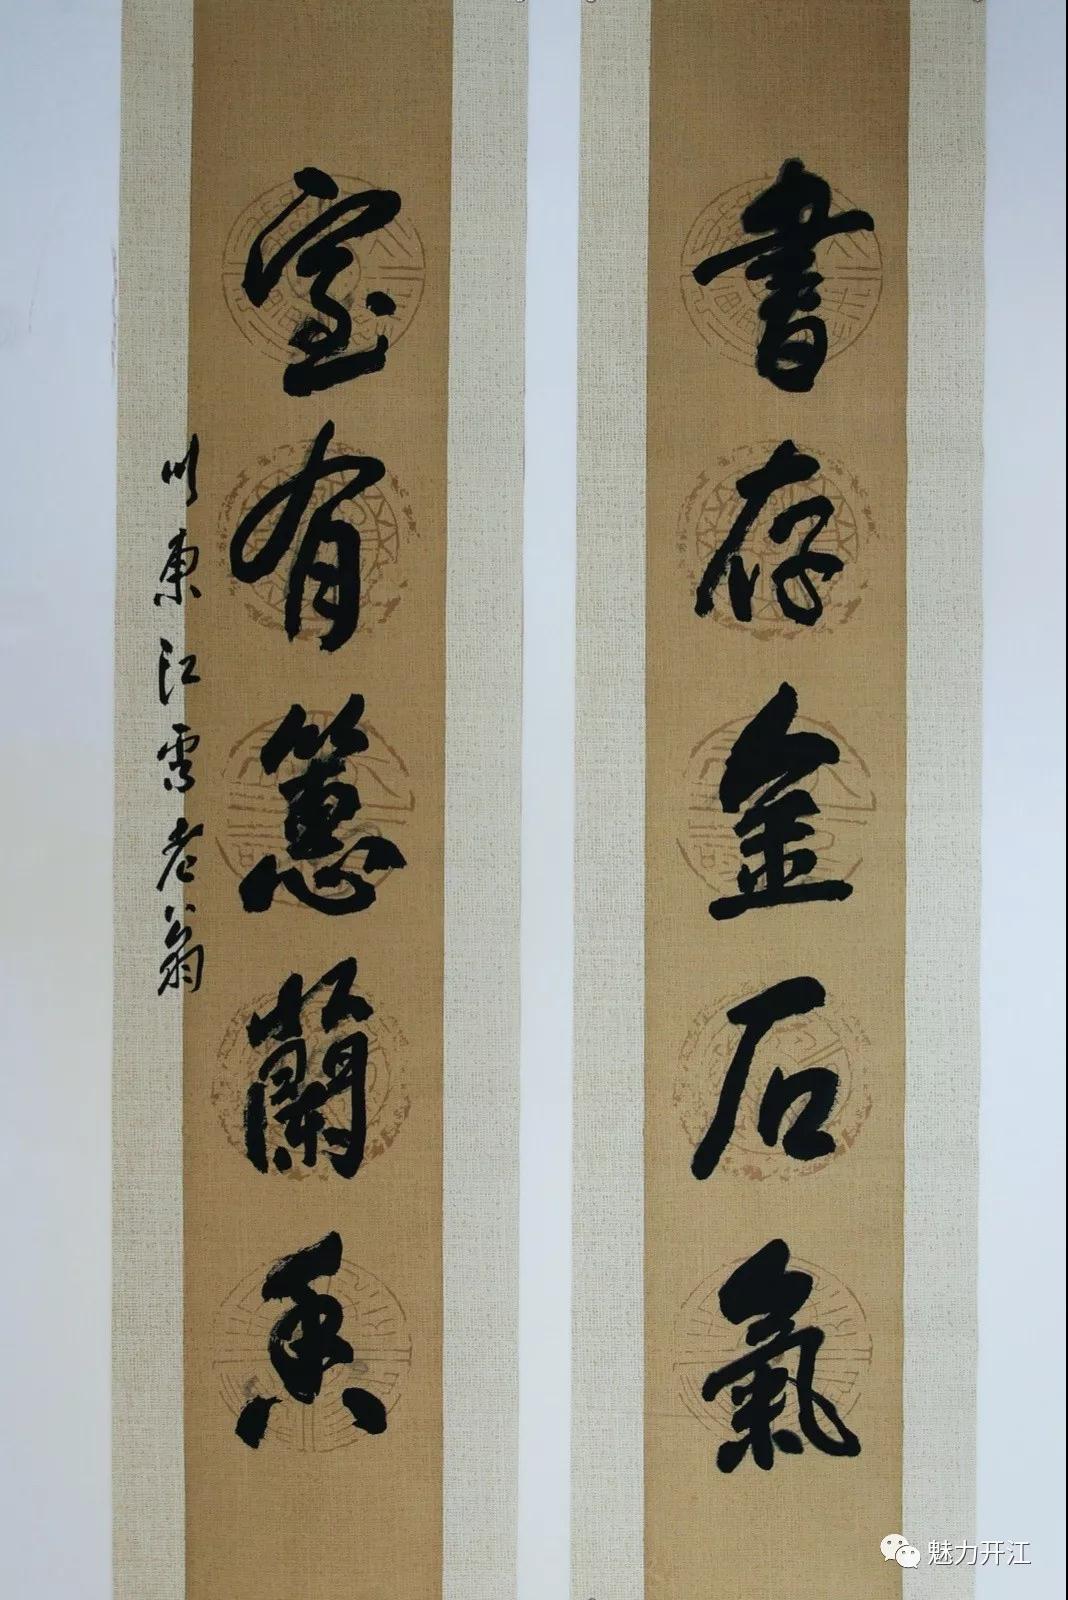 書存金石氣
室有蕙蘭香
川東江雪老翁
魅力开江